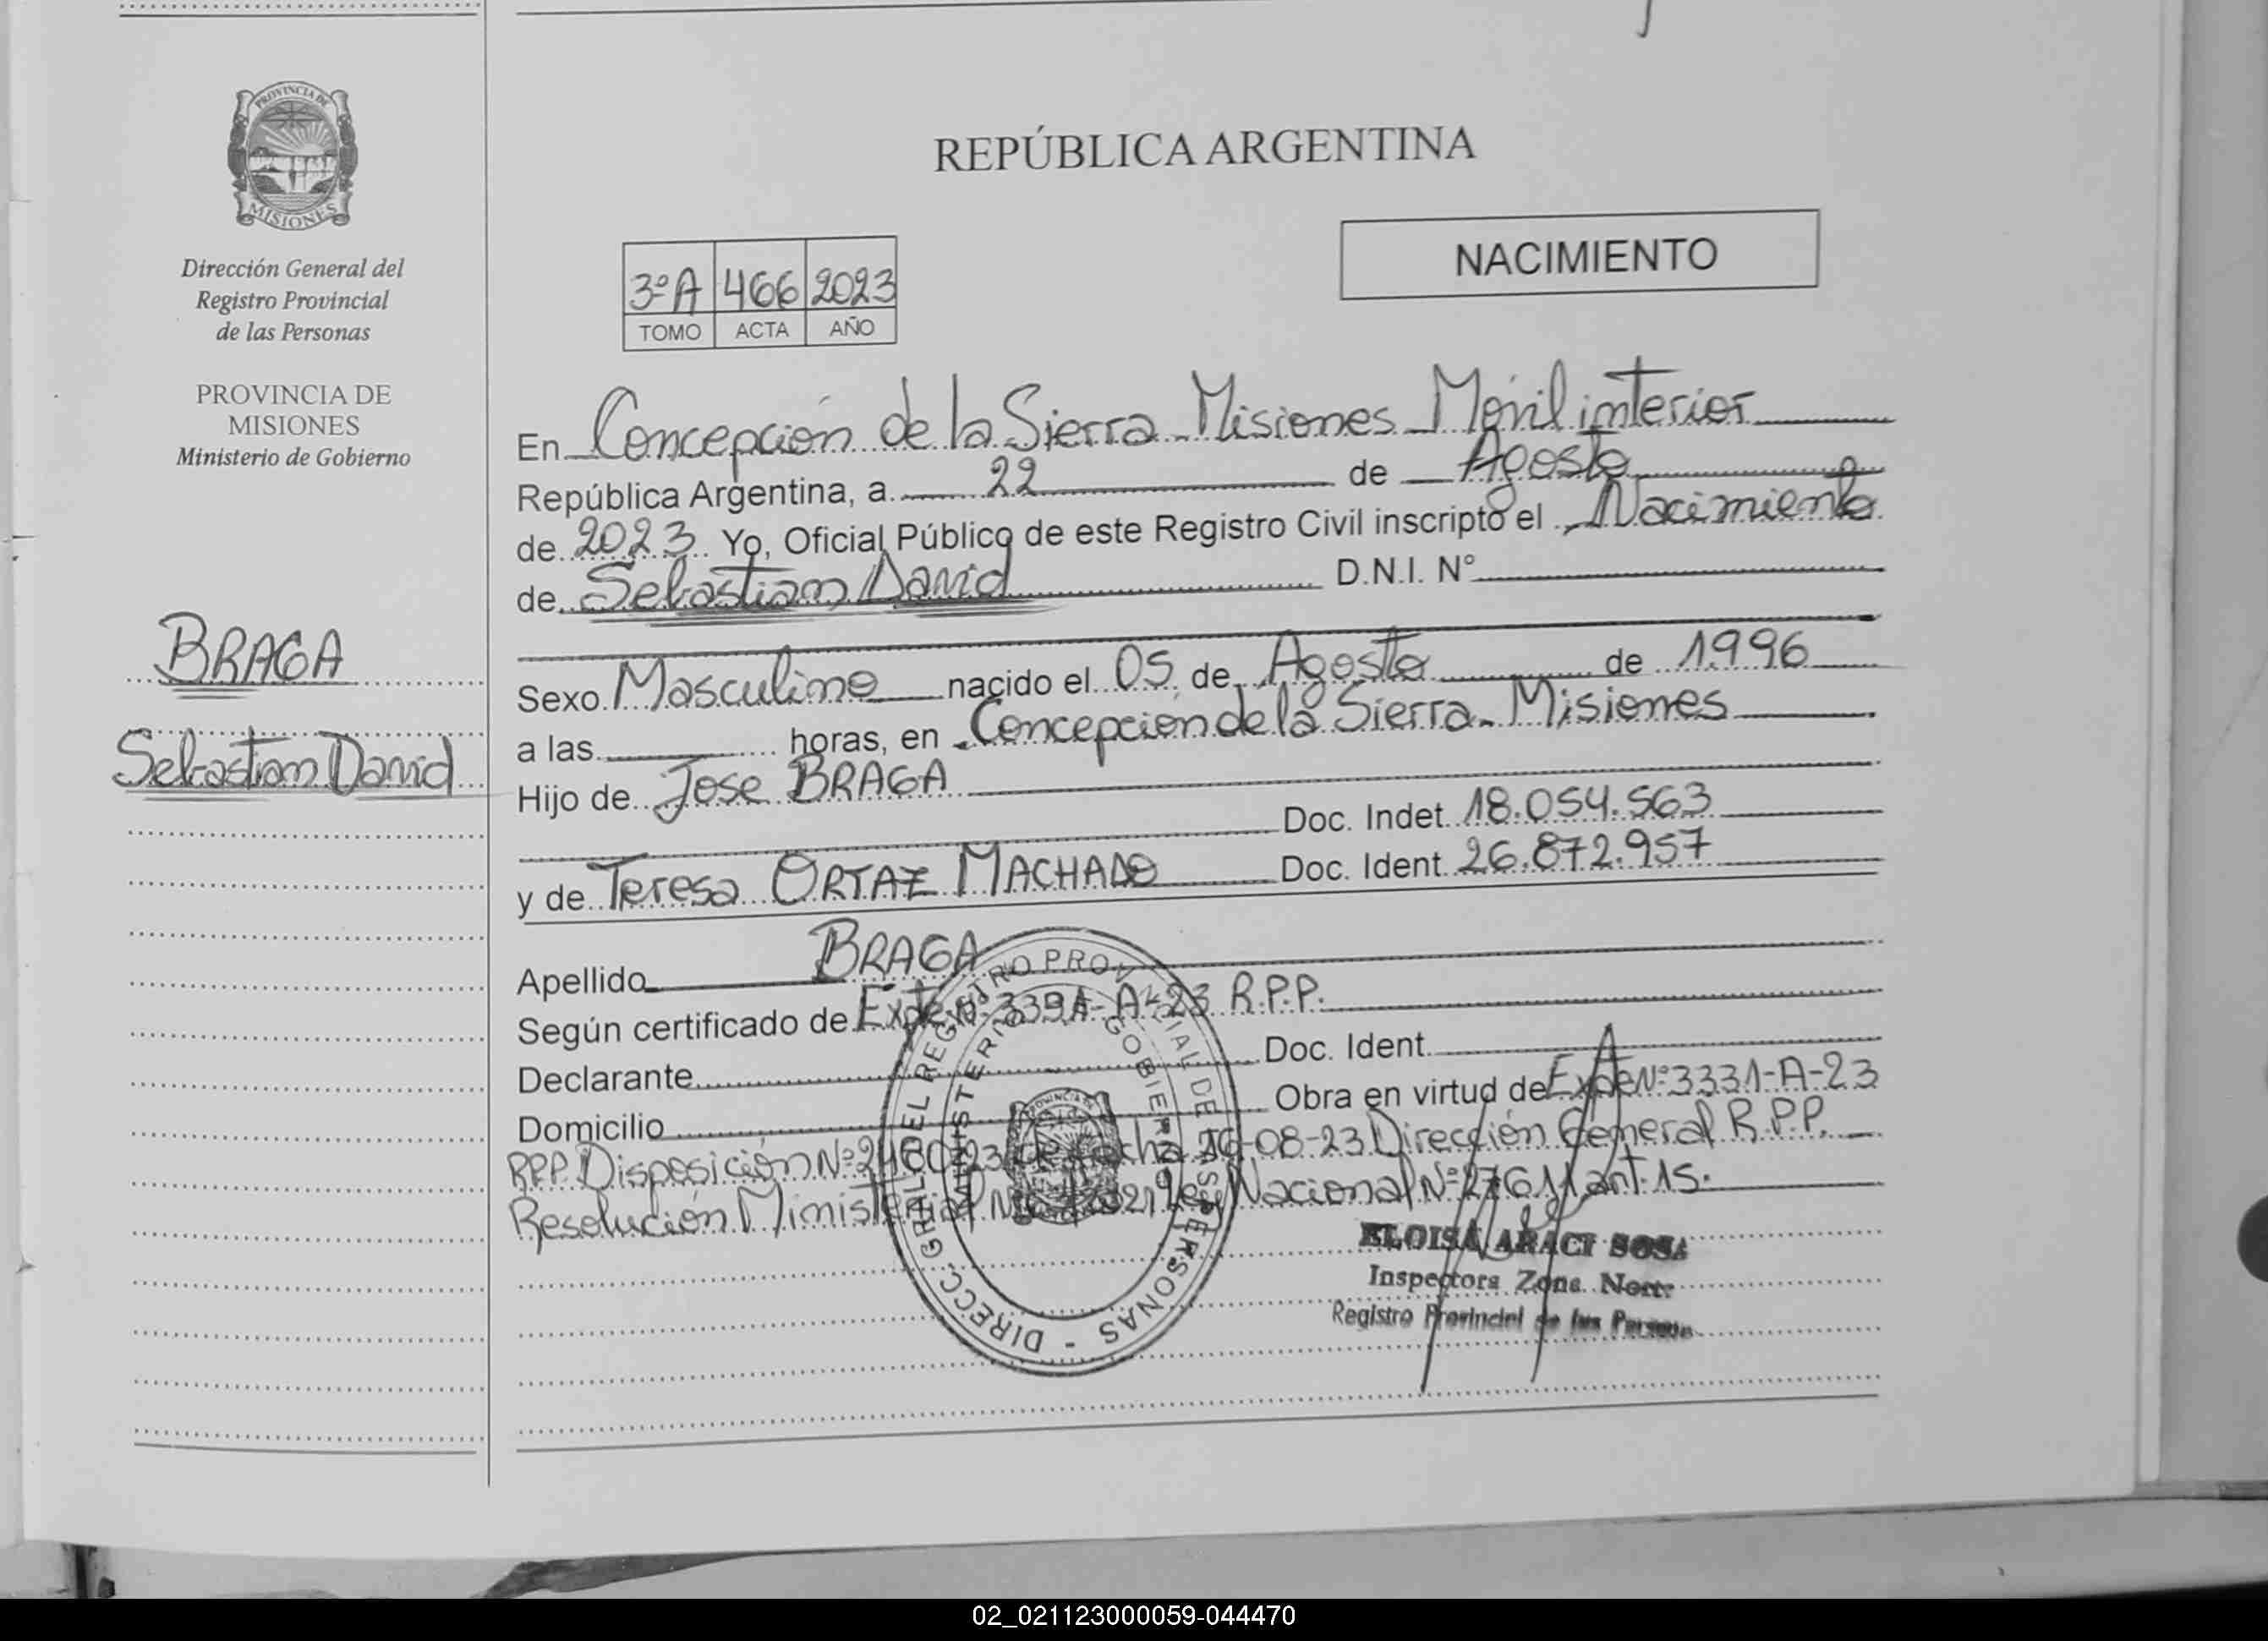 PROVINCIA DE
MISIONES
Dirección General del
Registro Provincial
de las Personas
PROVINCIA DE
MISIONES
Ministerio de Gobierno
BRAGA
Sebastian David
REPÚBLICA ARGENTINA
NACIMIENTO
3ºA 466 2023
TOMO ACTA AÑO
En Concepción de la Sierra Misiones Móvil interior
República Argentina, a 22 de Agosto
de 2023 Yo, Oficial Público de este Registro Civil inscripto el Nacimiento
de Sebastian David D.N.I. N°
Sexo Masculino nacido el 05 de Agosto de 1996
a las horas, en Concepción de la Sierra Misiones
Hijo de Jose BRAGA
Doc. Indet. 18.054.563
y de Teresa ORTAZ MACHADO Doc. Ident. 26.872.957
Apellido BRAGA
Según certificado de Expte Nº R.P.P.
Declarante Doc. Ident.
Domicilio Obra en virtud de Expte Nº 3331-A-23
RPP Disposición Nº de fecha 16-08-23 Dirección General R.P.P.
Resolución Ministerial Ley Nacional Nº 27611 art. 15.
DIRECC. GRAL DEL REGISTRO PROVINCIAL DE LAS PERSONAS -
MINISTERIO DE GOBIERNO
ELOISA ARACI SOSA
Inspectora Zona Norte
Registro Provincial de las Personas
02_021123000059-044470